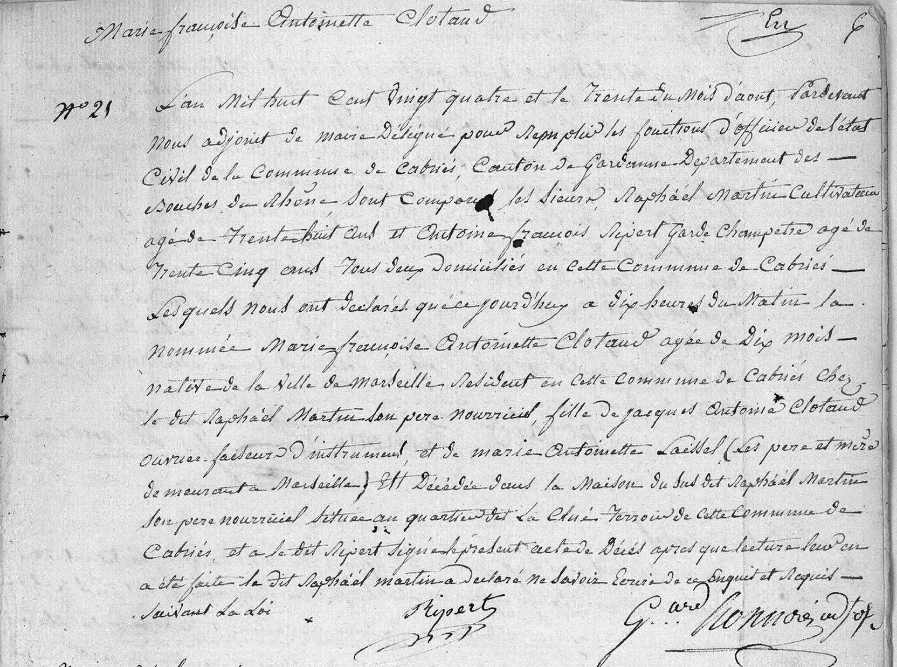 Marie françoise Antoinette Clotaud
6
N° 21
L'an Mil huit Cent Vingt quatre et le Trente du Mois d'aout, Pardevant
Nous adjoint de maire Designé pour Remplir les fonctions d'officier de l'état
Civil de la Commune de Cabriés, Canton de Gardanne Departement des —
Bouches du Rhône sont Comparus les Sieurs, Raphaël Martin Cultivateur
agé de Trente huit ans et Antoine françois Ripert Garde Champetre agé de
Trente Cinq ans Tous deux Domiciliés en Cette Commune de Cabriés —
Lesquels Nous ont declarés que ce jourd'huy a dix heures du Matin la
nommée Marie françoise Antoinette Clotaud agée de Dix mois —
native de la Ville de Marseille Resident en Cette Commune de Cabriés Chez
le dit Raphaël Martin Son pere Nourricier, fille de jacques Antoine Clotaud
ouvrier faiseur d'instrument, et de marie Antoinette Laissel, (Les pere et mere
demeurant a Marseille) Est Décédée dans la Maison du Sus dit Raphaël Martin
Son pere nourricier Située au quartier dit La Terroir de Cette Commune de
Cabriés, et a le dit Ripert Signé le present acte de Décés apres que lecture leur en
a été faite le dit Raphaël martin a declaré ne Savoir Ecrire de ce Enquit et Requis —
Suivant La Loi
Ripert